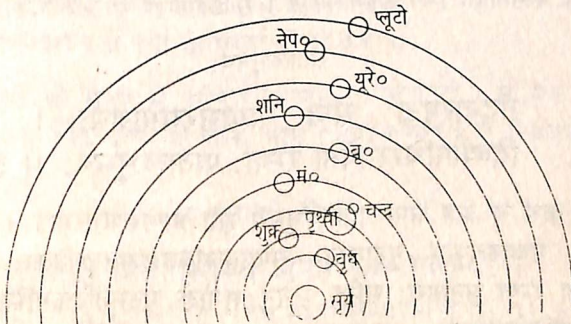 प्लूटो
नेप०
यूरे०
शनि
वृ०
मं०
पृथ्वी
चन्द्र
शुक्र
बुध
सूर्य